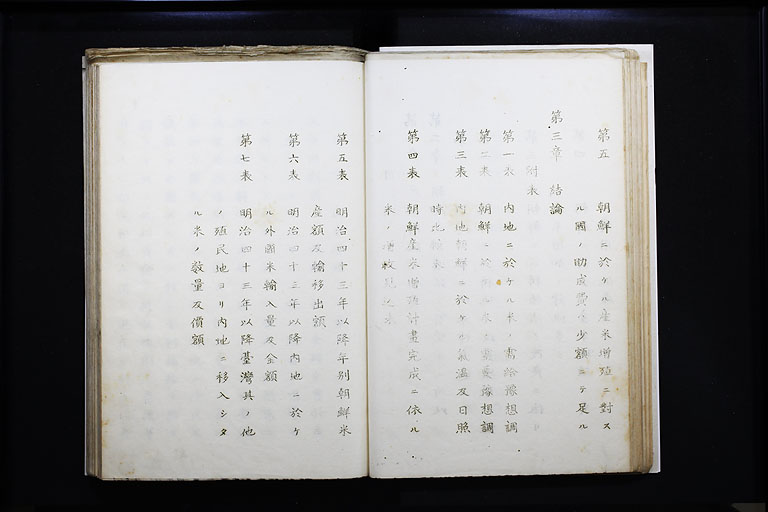 第五 朝鮮ニ於ケル産米增殖ニ對ス
ル國ノ助成費ハ少額ニテ足ル
第三章 結論
附表
第一表 内地ニ於ケル米ノ需給豫想調
第二表 朝鮮ニ於ケル米ノ需要豫想調
第三表 内地朝鮮ニ於ケル氣溫及日照
時比較表
第四表 朝鮮産米增殖計畫完成ニ依ル
米ノ增收見込
第五表 明治四十三年以降年別朝鮮米
産額及輸移出額
第六表 明治四十三年以降内地ニ於ケ
ル外國米輸入量及金額
第七表 明治四十三年以降臺灣其ノ他
ノ殖民地ヨリ内地ニ移入シタ
ル米ノ數量及價額